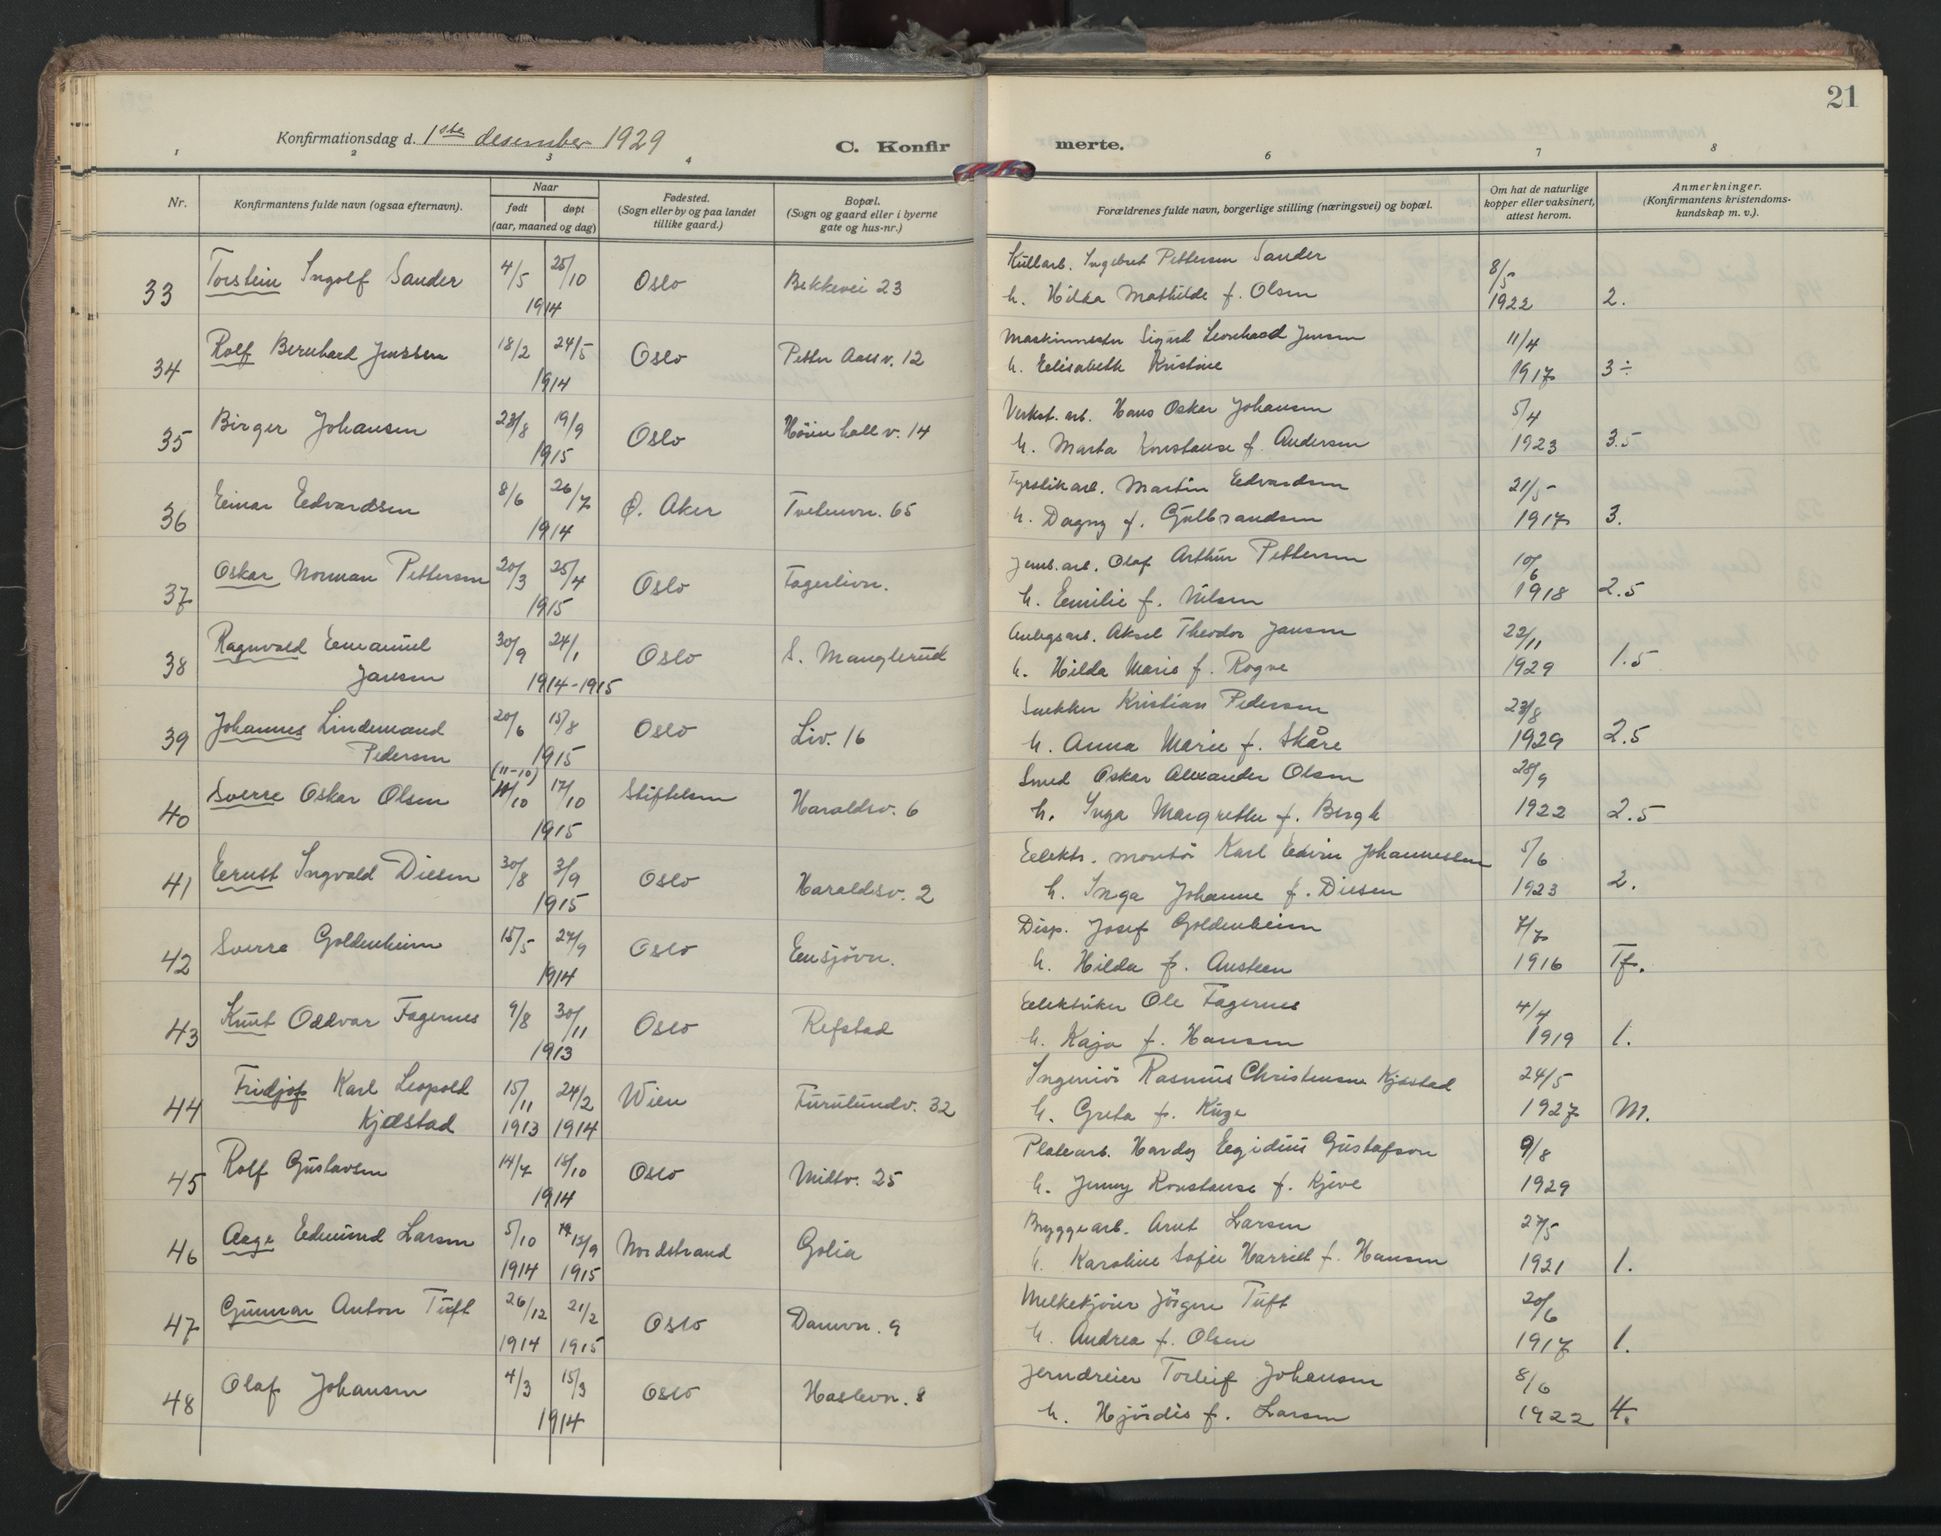 21
Konfirmationsdag d. 1ste desember 1929
C. Konfirmerte.
1 2 3 4 6 7 8
Nr. Konfirmantens fulde navn (ogsaa efternavn). Naar født døpt (aar, maaned og dag) Fødested. (Sogn eller by og paa landet tillike gaard.) Bopæl. (Sogn og gaard eller i byerne gate og hus-nr.) Forældrenes fulde navn, borgerlige stilling (næringsvei) og bopæl. Om hat de naturlige kopper eller vaksinert, attest herom. Anmerkninger. (Konfirmantens kristendomskundskap m. v.).
33 Torstein Ingolf Sander 4/5 25/10 1914 Oslo Bekkevei 23 Kullarb. Ingebret Pettersen Sander 8/5
h. Hilda Mathilde f. Olsen 1922 2.
34 Rolf Bernhard Jenssen 18/2 24/5 1914 Oslo Petter Aass v. 12 Maskinmester Sigurd Leonhard Jensen 11/4
h. Elisabeth Kristine 1917 3÷
35 Birger Johansen 23/8 19/9 1915 Oslo Høienhall v. 14 Verkst. arb. Hans Oskar Johansen 5/4
h. Marta Konstanse f. Andersen 1923 3.5
36 Einar Edvardsen 8/6 26/7 1914 Ø. Aker Tvetenvn. 65 Fyrstikarb. Martin Edvardsen 21/5
h. Dagny f. Gulbrandsen 1917 3.
37 Oskar Norman Pettersen 20/3 25/4 1915 Oslo Fagerlivn. Jernb.arb. Olaf Arthur Pettersen 10/6
h. Emilie f. Nilsen 1918 2.5
38 Ragnvald Emanuel 30/9 24/1 Oslo S. Manglerud Anlegsarb. Aksel Theodor Jansen 22/11
Jansen 1914-1915 h. Hilda Marie f. Rogne 1929 1.5
39 Johannes Lindemand 20/6 15/8 Oslo Liv. 16 Snekker Kristian Pedersen 23/8
Pedersen 1915 h. Anna Marie f. Skåre 1929 2.5
40 Sverre Oskar Olsen (11-10) 10/10 17/10 1915 Stiftelsen Haraldsv. 6 Smed Oskar Alexander Olsen 28/9
h. Inga Margrethe f. Bergh 1922 2.5
41 Ernst Ingvald Diesen 30/8 3/9 1915 Oslo Haraldsv. 2 Elektr. montør Karl Edvin Johannessen 5/6
h. Inga Johanne f. Diesen 1923 2.
42 Sverre Goldenheim 15/5 27/9 1914 Oslo Ensjøvn. Disp. Josef Goldenheim 7/7
h. Hilda f. Austeen 1916 Tf.
43 Knut Oddvar Fagernes 9/8 30/11 1913 Oslo Refstad Elektriker Ole Fagernes 4/4
h. Kaja f. Hansen 1919 1.
44 Fridjof Karl Leopold 15/11 24/2 Wien Furulundv. 32 Ingeniør Rasmus Christensen Kjæstad 24/5
Kjæstad 1913 1914 h. Greta f. Kuze 1927 M.
45 Rolf Gustavsen 14/7 18/10 1914 Oslo Midtv. 25 Platearb. Hardy Egidius Gustafson 9/8
h. Jenny Konstanse f. Kjeve 1929
46 Aage Edmund Larsen 5/10 12/9 Nordstrand Golia Bryggearb. Arnt Larsen 27/5
1914 1915 h. Karoline Sofie Harriet f. Hansen 1921 1.
47 Gunnar Anton Tuft 26/12 21/2 Oslo Damvn. 9 Melkekjører Jørgen Tuft 20/6
1914 1915 h. Andrea f. Olsen 1917 1.
48 Olaf Johansen 4/3 15/3 1914 Oslo Haslevn. 8 Jerndreier Torleif Johansen 8/6
h. Hjørdis f. Larsen 1922 4.